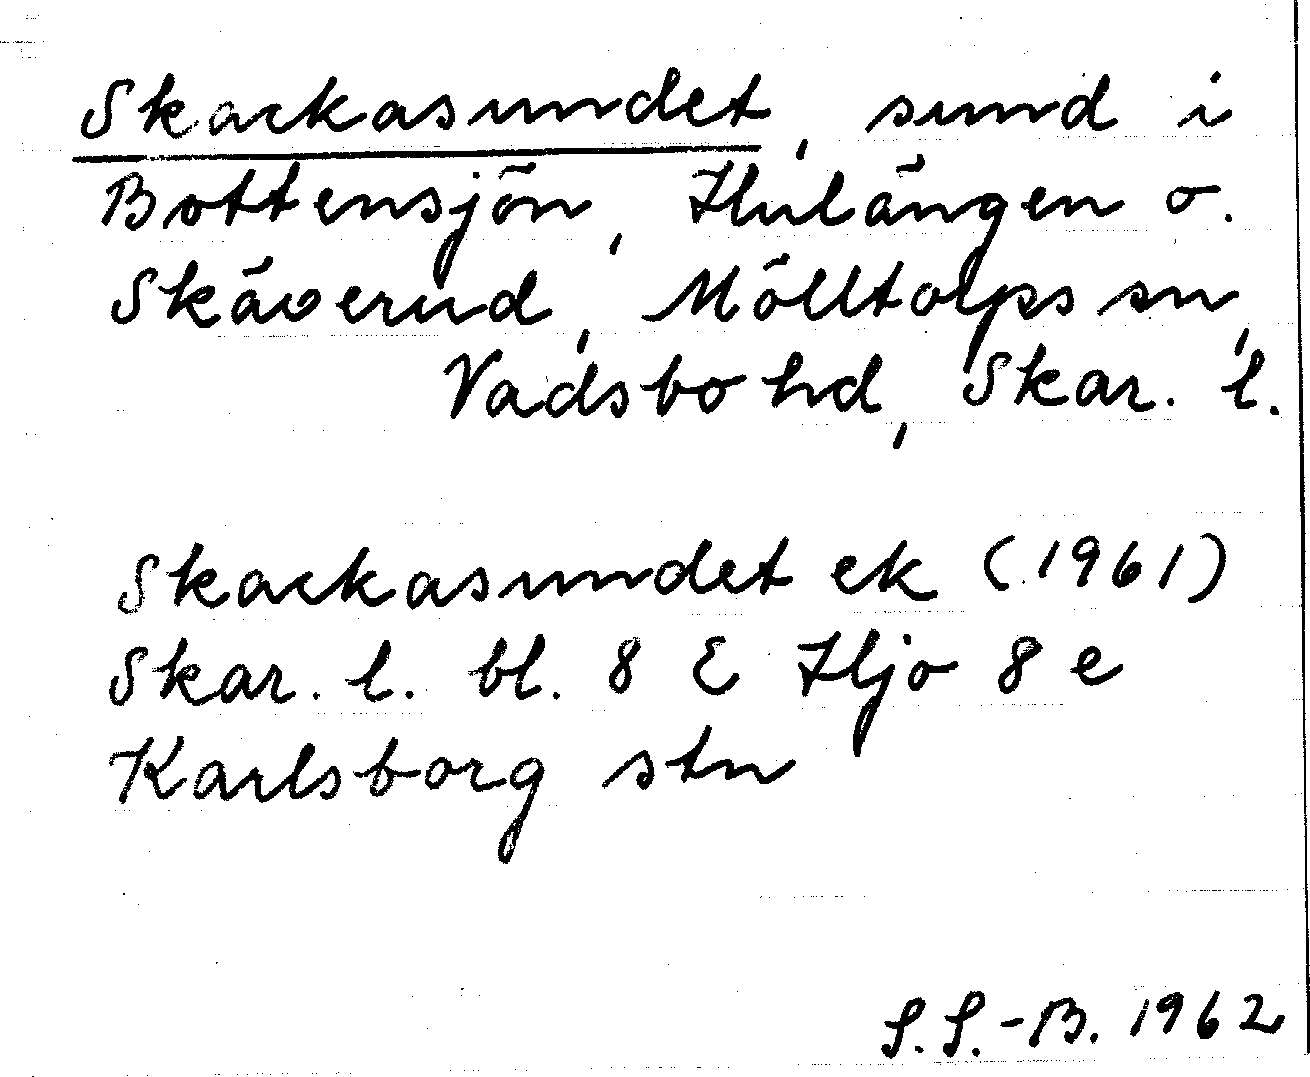 Skackasundet, sund i
Bottensjön, Hulängen o.
Skäverud, Mölltorps sn,
Vadsbo hd, Skar. l.
Skackasundet ek (1961)
Skar. l. bl. 8 E Hjo 8 e
Karlsborg stn
S.S.-B. 1962